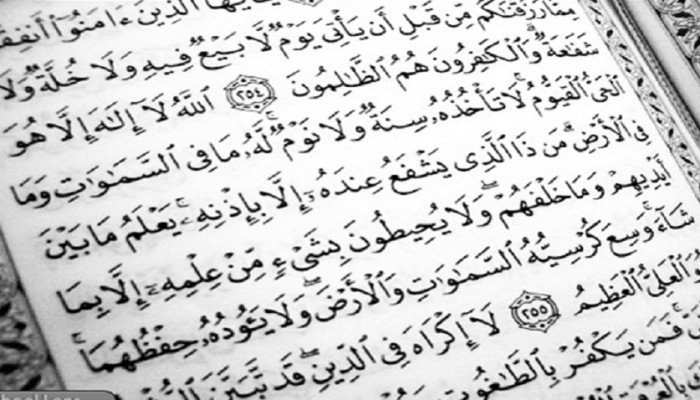 يَٰٓأَيُّهَا ٱلَّذِينَ ءَامَنُوٓا۟ أَنفِقُوا۟
مِمَّا رَزَقْنَٰكُم مِّن قَبْلِ أَن يَأْتِىَ يَوْمٌ لَّا بَيْعٌ فِيهِ وَلَا خُلَّةٌ وَلَا
شَفَٰعَةٌ وَٱلْكَٰفِرُونَ هُمُ ٱلظَّٰلِمُونَ ٢٥٤ ٱللَّهُ لَآ إِلَٰهَ إِلَّا هُوَ
ٱلْحَىُّ ٱلْقَيُّومُ لَا تَأْخُذُهُۥ سِنَةٌ وَلَا نَوْمٌ لَّهُۥ مَا فِى ٱلسَّمَٰوَٰتِ وَمَا
فِى ٱلْأَرْضِ مَن ذَا ٱلَّذِى يَشْفَعُ عِندَهُۥٓ إِلَّا بِإِذْنِهِۦ يَعْلَمُ مَا بَيْنَ
أَيْدِيهِمْ وَمَا خَلْفَهُمْ وَلَا يُحِيطُونَ بِشَىْءٍ مِّنْ عِلْمِهِۦٓ إِلَّا بِمَا
شَآءَ وَسِعَ كُرْسِيُّهُ ٱلسَّمَٰوَٰتِ وَٱلْأَرْضَ وَلَا يَـُٔودُهُۥ حِفْظُهُمَا
ٱلْعَلِىُّ ٱلْعَظِيمُ ٢٥٥ لَآ إِكْرَاهَ فِى ٱلدِّينِ قَد تَّبَيَّنَ
فَمَن يَكْفُرْ بِٱلطَّٰغُوتِ